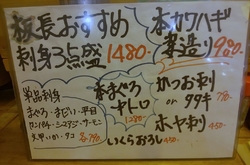 板長おすすめ
刺身3点盛
1480-
本カワハギ
薄造り 980-
単品刺身
まぐろ・まだい・平目
カンパチ・シマアジ・サーモン
タコ
本まぐろ
中トロ
1280-
かつお刺
or タタキ
ホヤ刺
いくらおろし